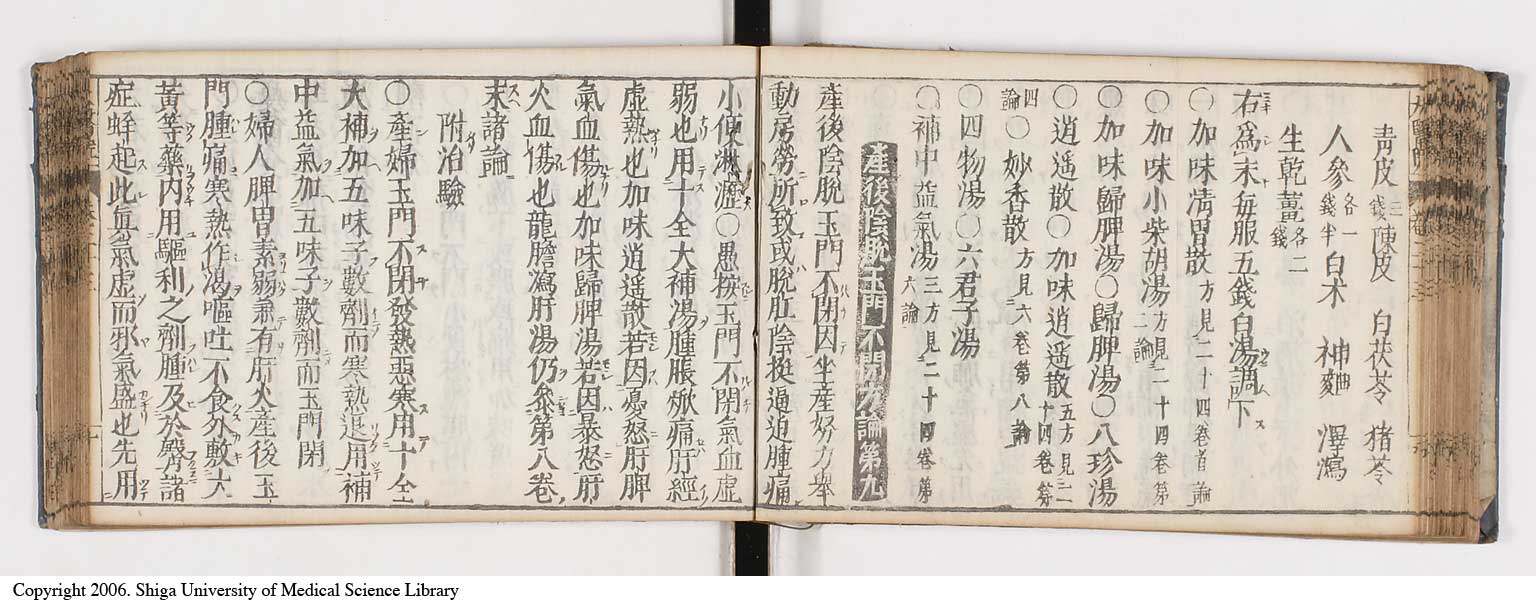 青皮三錢陳皮　白茯苓　猪苓
人參各一錢半白朮　神麯　澤瀉
生乾薑各二錢
右爲末毎服五錢白湯調下
〇加味淸胃散方見二十四卷首論
〇加味小柴胡湯方見二十四卷第二論
〇加味歸脾湯〇歸脾湯〇八珍湯
〇逍遥散〇加味逍遥散五方見二十四卷第
四論〇妙香散方見六卷第八論
〇四物湯〇六君子湯
〇補中益氣湯三方見二十四卷第六論
產後陰脫玉門不閉方論第九
產後陰脫玉門不閉因坐產努力舉
動房勞所致或脫肛陰挺逼迫腫痛
小便淋瀝〇愚按玉門不閉氣血虛
弱也用十全大補湯腫脹焮痛肝經
虛熱也加味逍遥散若因憂怒肝脾
氣血傷也加味歸脾湯若因暴怒肝
火血傷也龍膽瀉肝湯仍叅第八卷
末諸論
附治驗
〇產婦玉門不閉發熱惡寒用十全
大補加五味子數劑而寒熱退用補
中益氣加五味子數劑而玉門閉
〇婦人脾胃素弱兼有肝火產後玉
門腫痛寒熱作渴嘔吐不食外敷大
黃等藥內用驅利之劑腫及於臀諸
症蜂起此眞氣虛而邪氣盛也先用
Copyright 2006. Shiga University of Medical Science Library